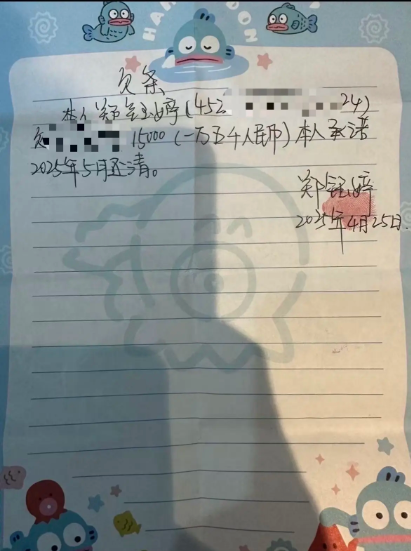 欠条
本人郑钰婷(452 24)
欠 15000 (一万五千人民币) 本人承诺
2025年5月还清。
郑钰婷
2025年4月25日.